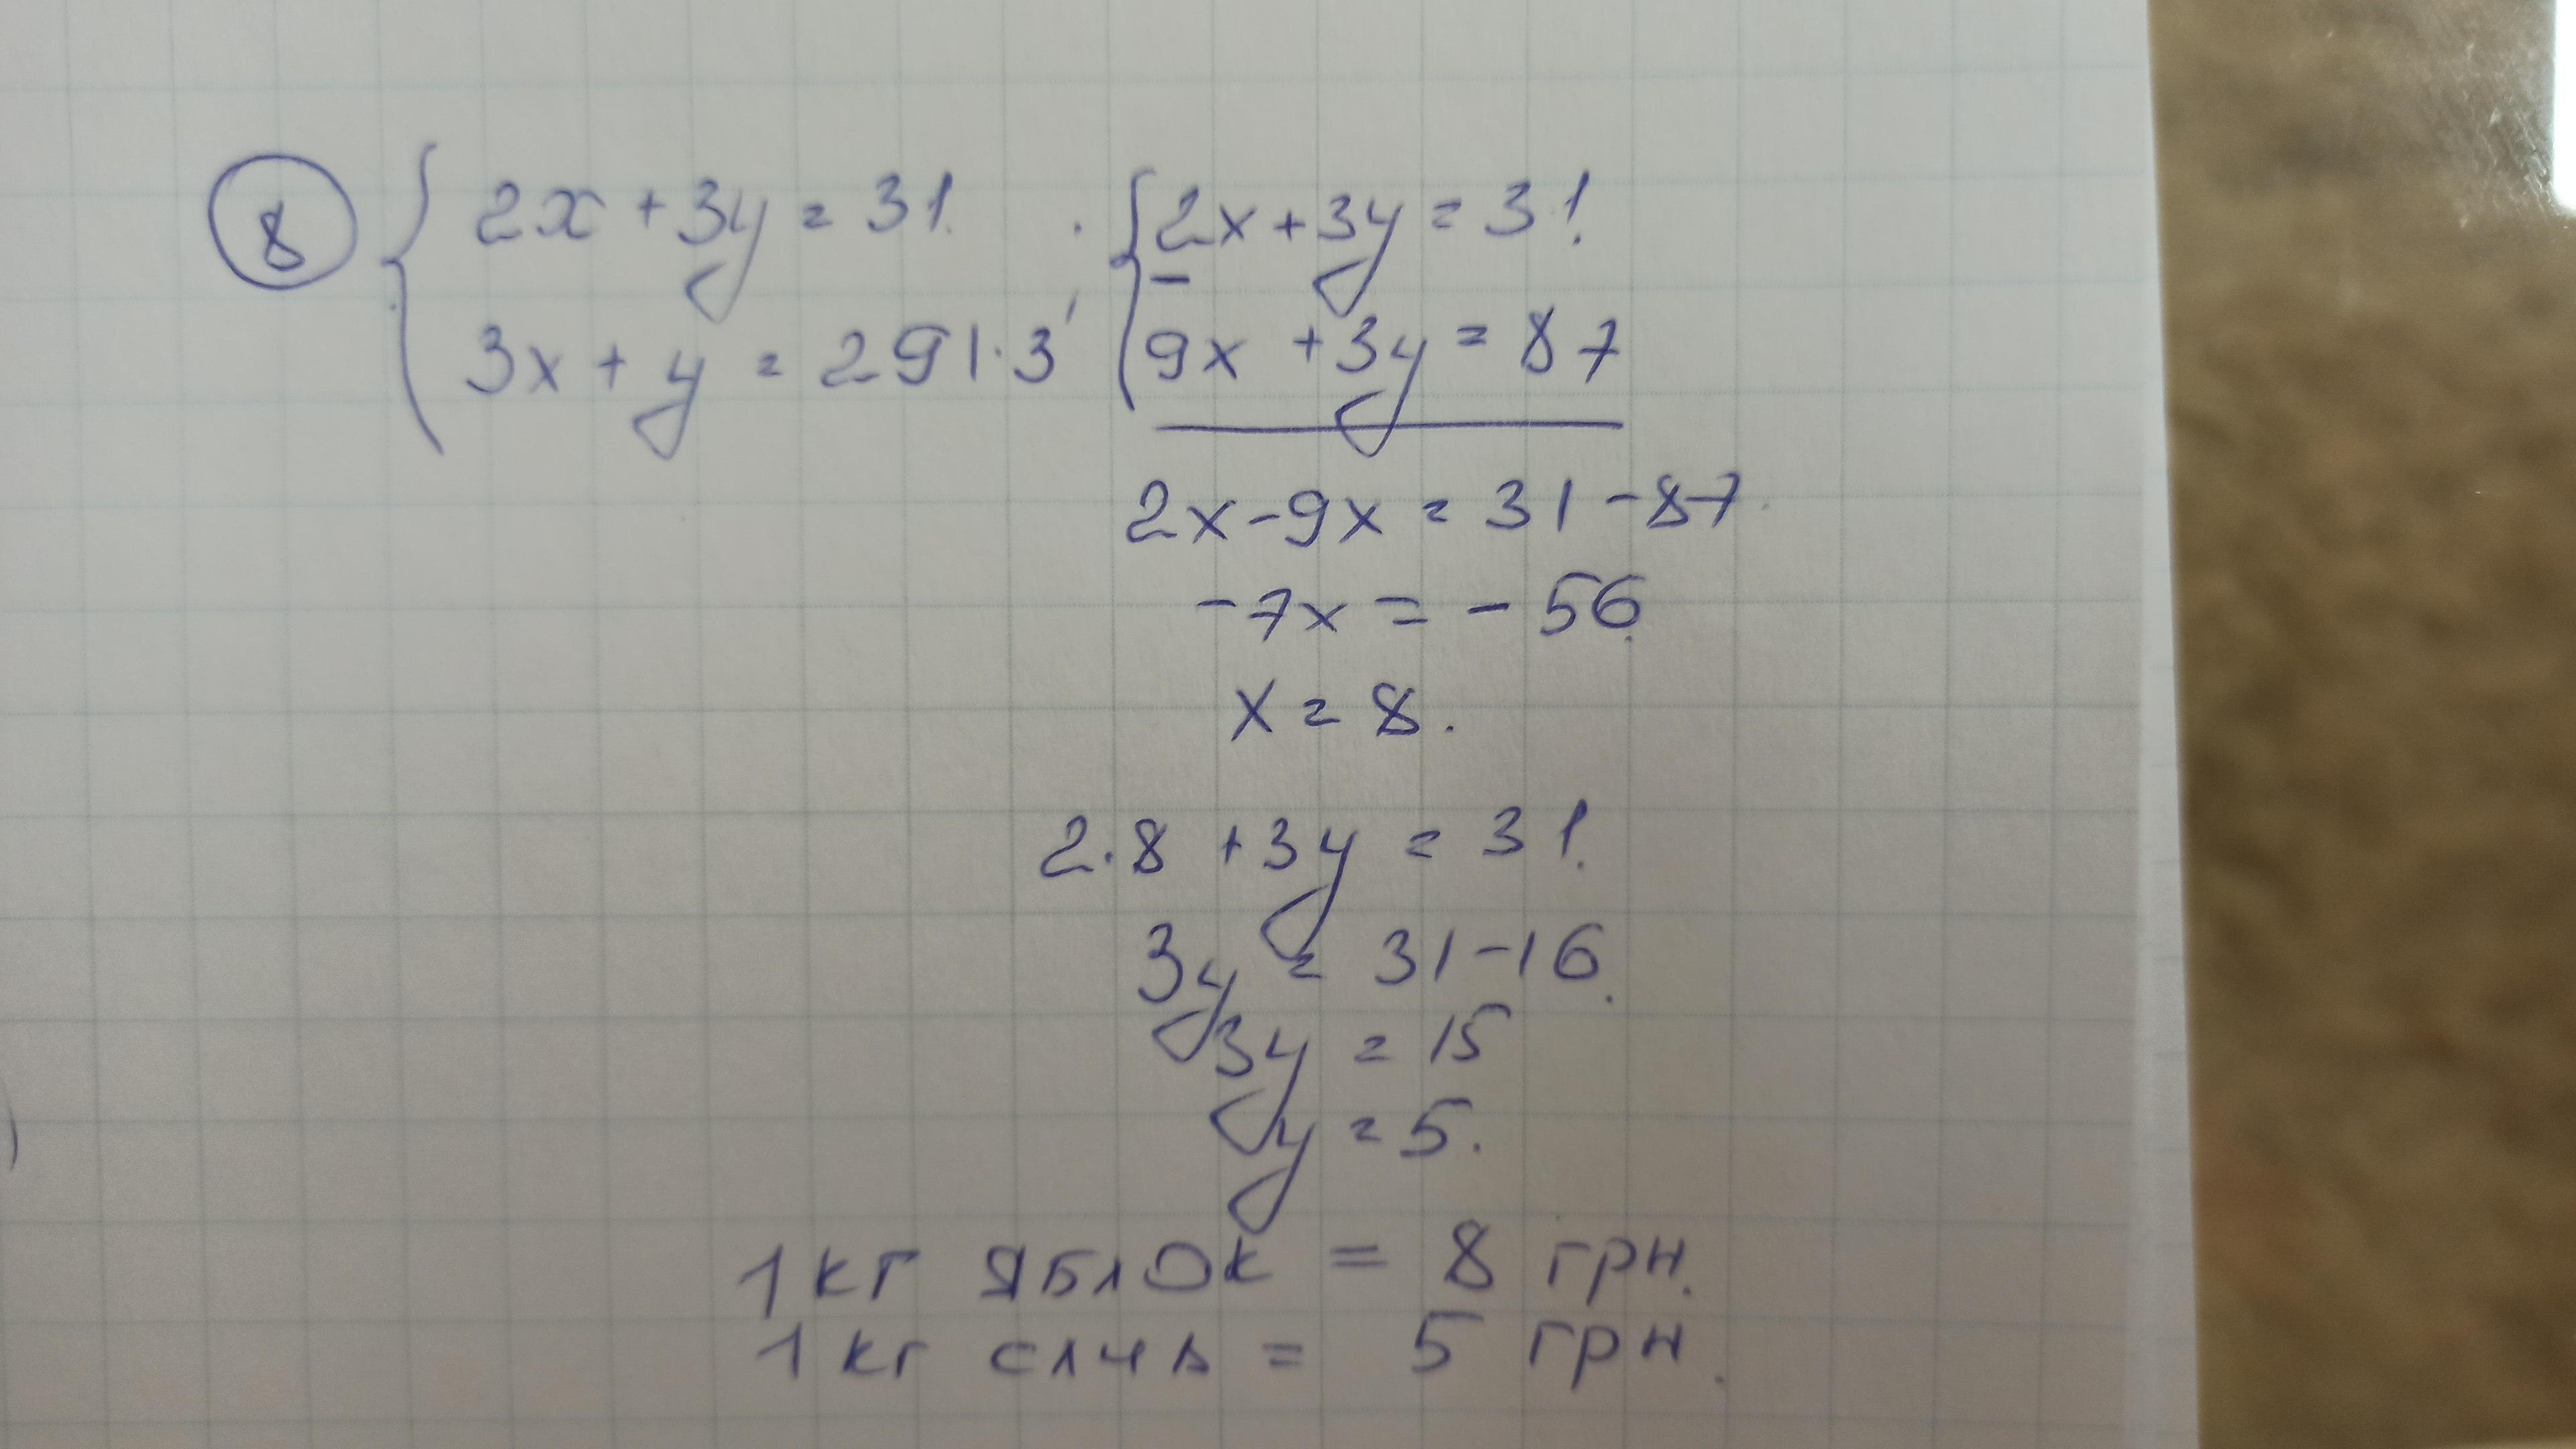 8 { 2x + 3y = 31.
3x + y = 29 | · 3 ;
{ 2x + 3y = 31.
–
9x + 3y = 87
2x - 9x = 31 - 87.
-7x = -56.
x = 8.
2·8 + 3y = 31.
3y = 31 - 16.
3y = 15
y = 5.
1 кг яблок = 8 грн.
1 кг слив = 5 грн.